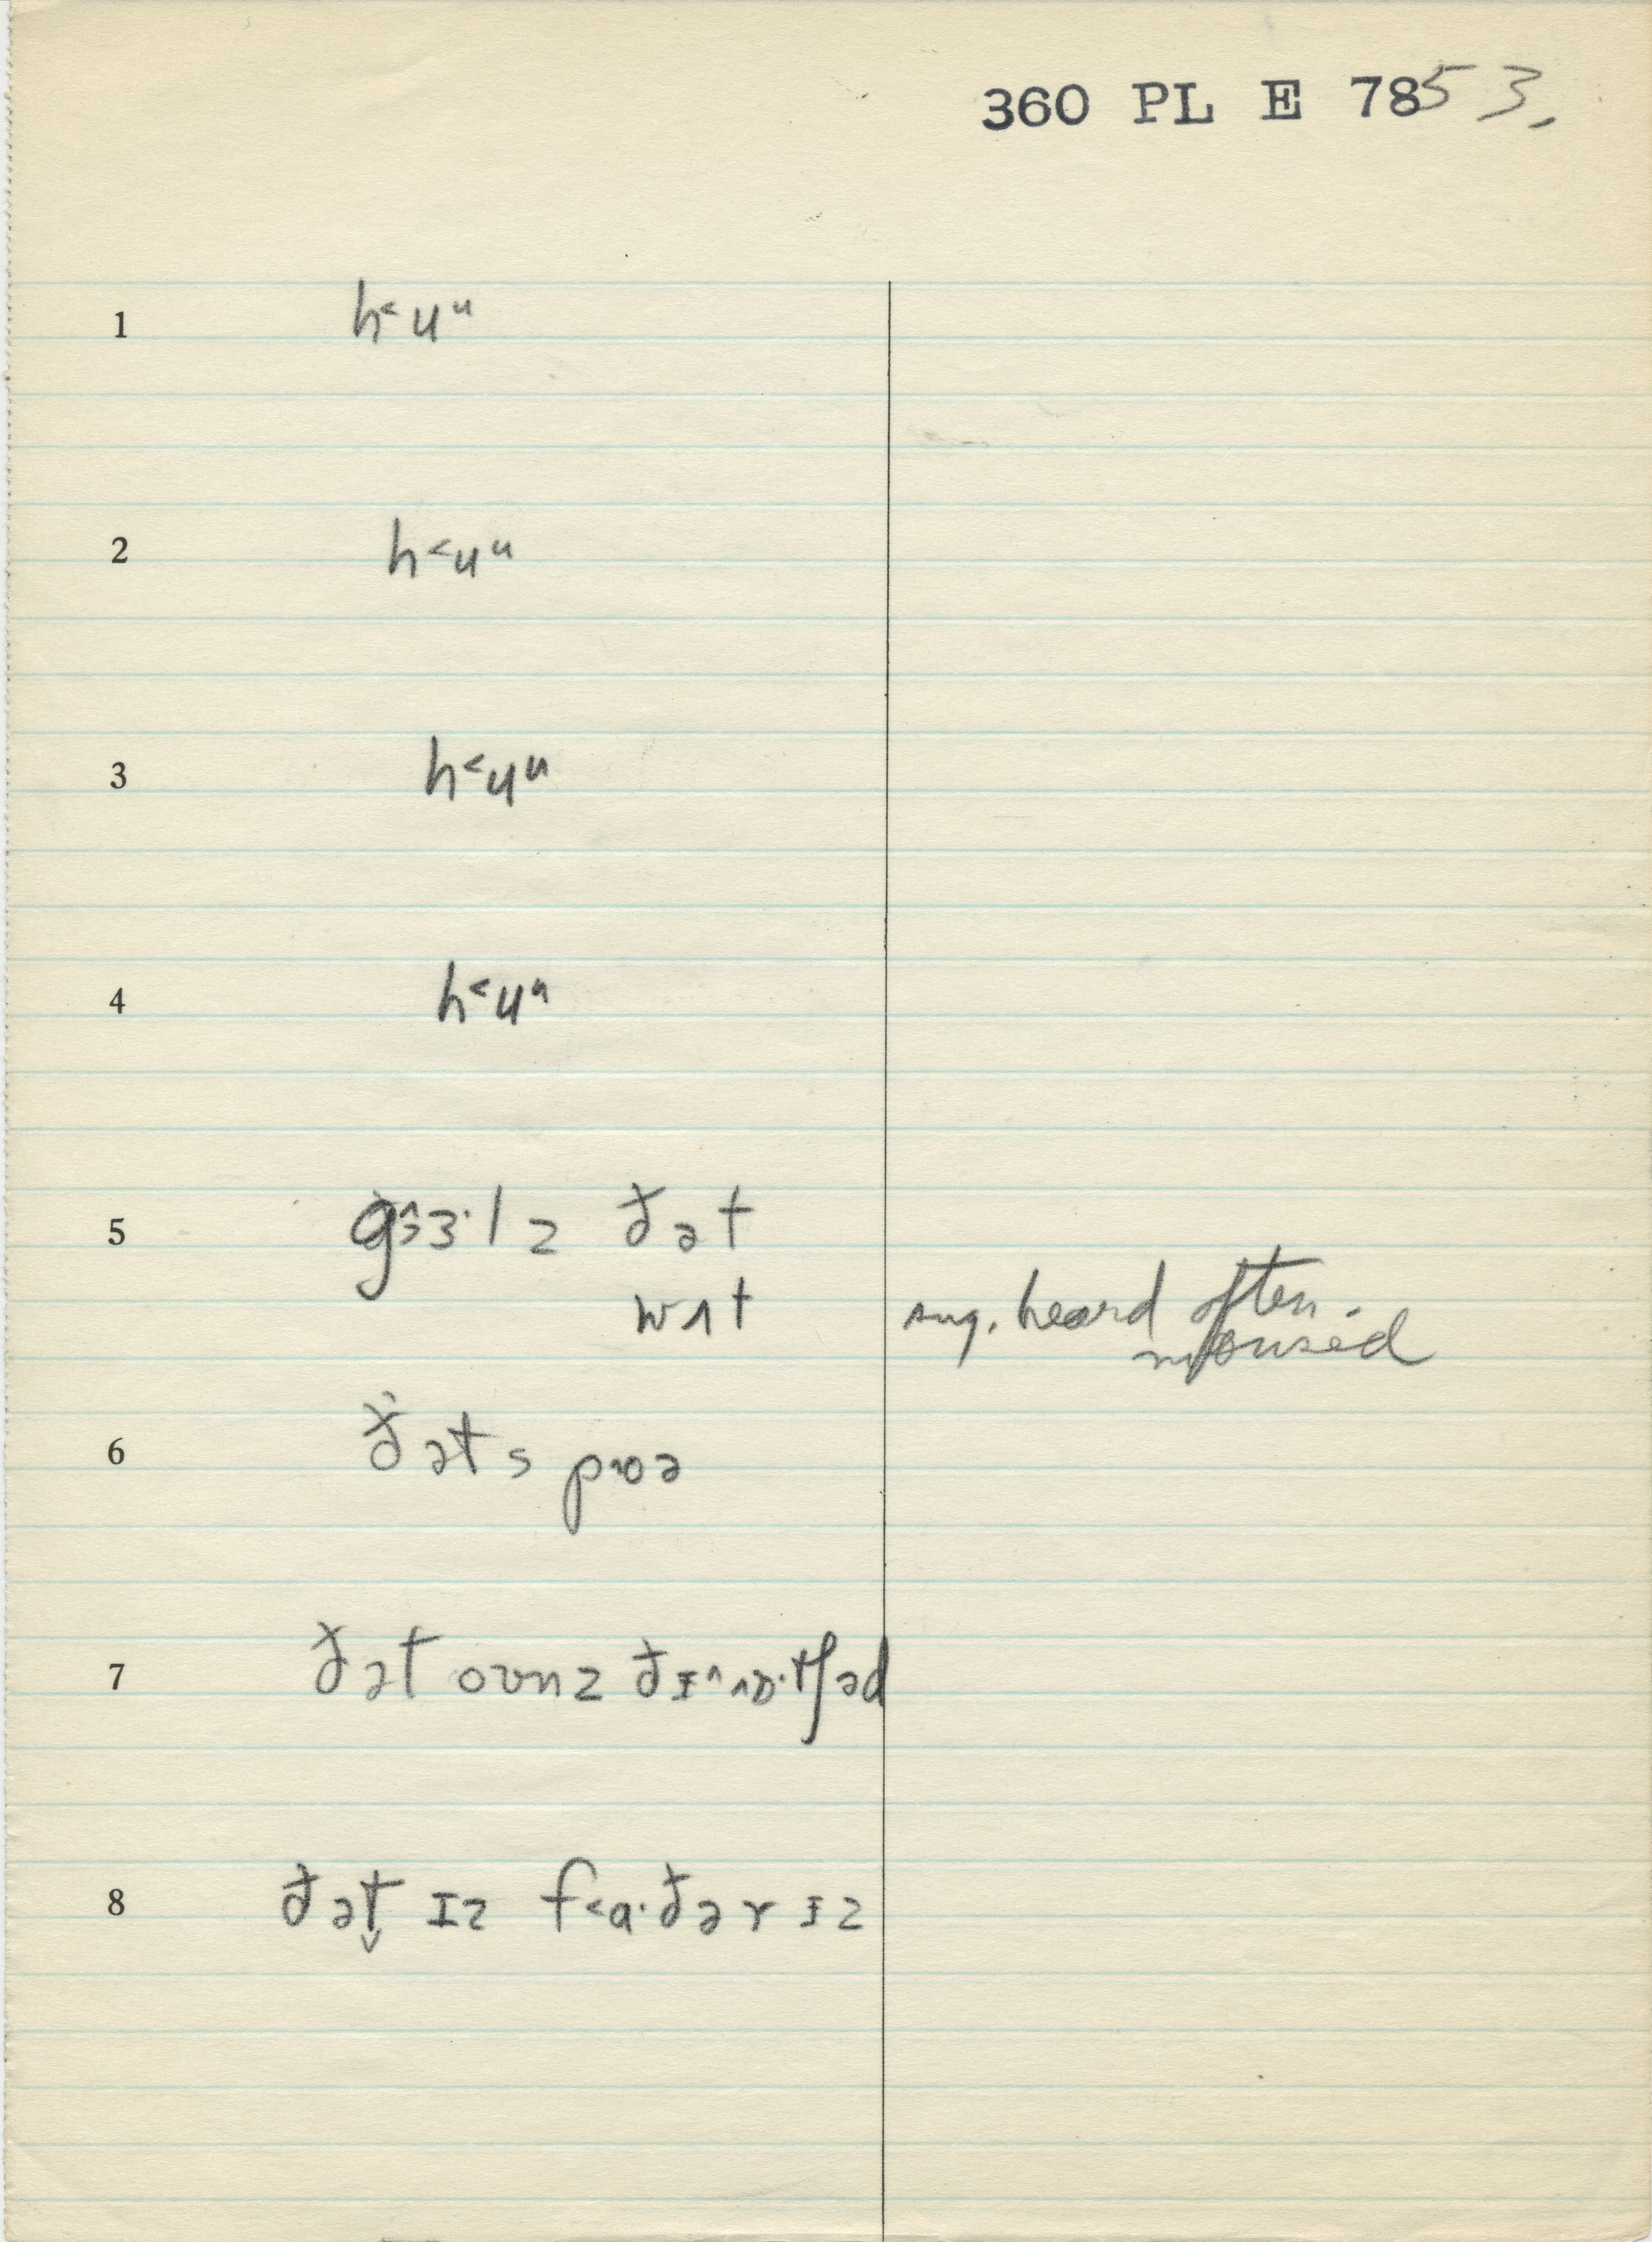 360 PL E 7853.
1 h˂uᵘ
2 h˂uᵘ
3 h˂uᵘ
4 h˂uᵘ
5 g ɜ·lz ðət
wʌt
sug. heard often.
6 ðəts
7 ðət oʊnz ðɪ˄
8 ðət̬ ɪz f˂a·ðər ɪz